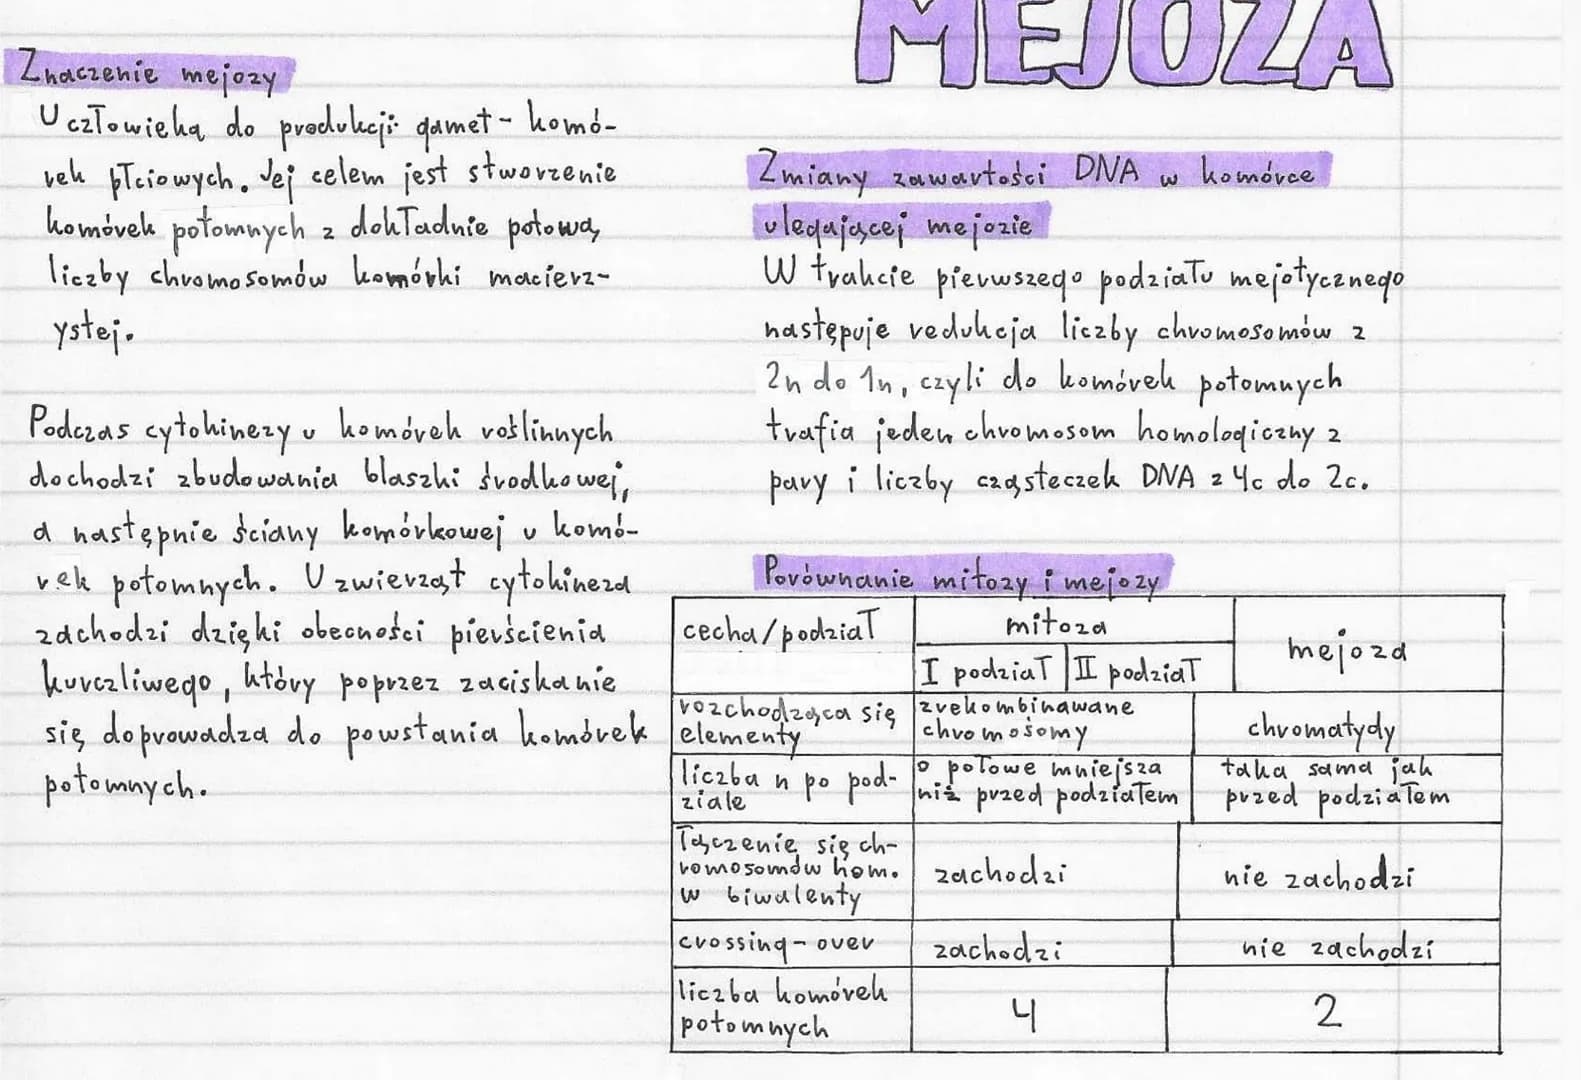 MEJOZA
Znaczenie mejozy
U człowieka do produkcji gamet - komó-
rek płciowych. Jej celem jest stworzenie
komórek potomnych z dokładnie połową
liczby chromosomów komórki macierz-
ystej.
Podczas cytokinezy u komórek roślinnych
dochodzi zbudowania blaszki środkowej,
a następnie ściany komórkowej u komó-
rek potomnych. U zwierząt cytokineza
zachodzi dzięki obecności pierścienia
kurczliwego, który poprzez zaciskanie
się doprowadza do powstania komórek
potomnych.
Zmiany zawartości DNA w komórce
ulegającej mejozie
W trakcie pierwszego podziału mejotycznego
następuje redukcja liczby chromosomów z
2n do 1n, czyli do komórek potomnych
trafia jeden chromosom homologiczny z
pary i liczby cząsteczek DNA z 4c do 2c.
Porównanie mitozy i mejozy
cecha/podział mitoza mejoza
I podział II podział
rozchodząca się elementy zrekombinawane chromosomy chromatydy
liczba n po pod-
ziale o połowe mniejsza niż przed podziałem taka sama jak przed podziałem
łączenie się ch-
romosomów hom.
w biwalenty zachodzi nie zachodzi
crossing-over zachodzi nie zachodzi
liczba komórek
potomnych 4 2